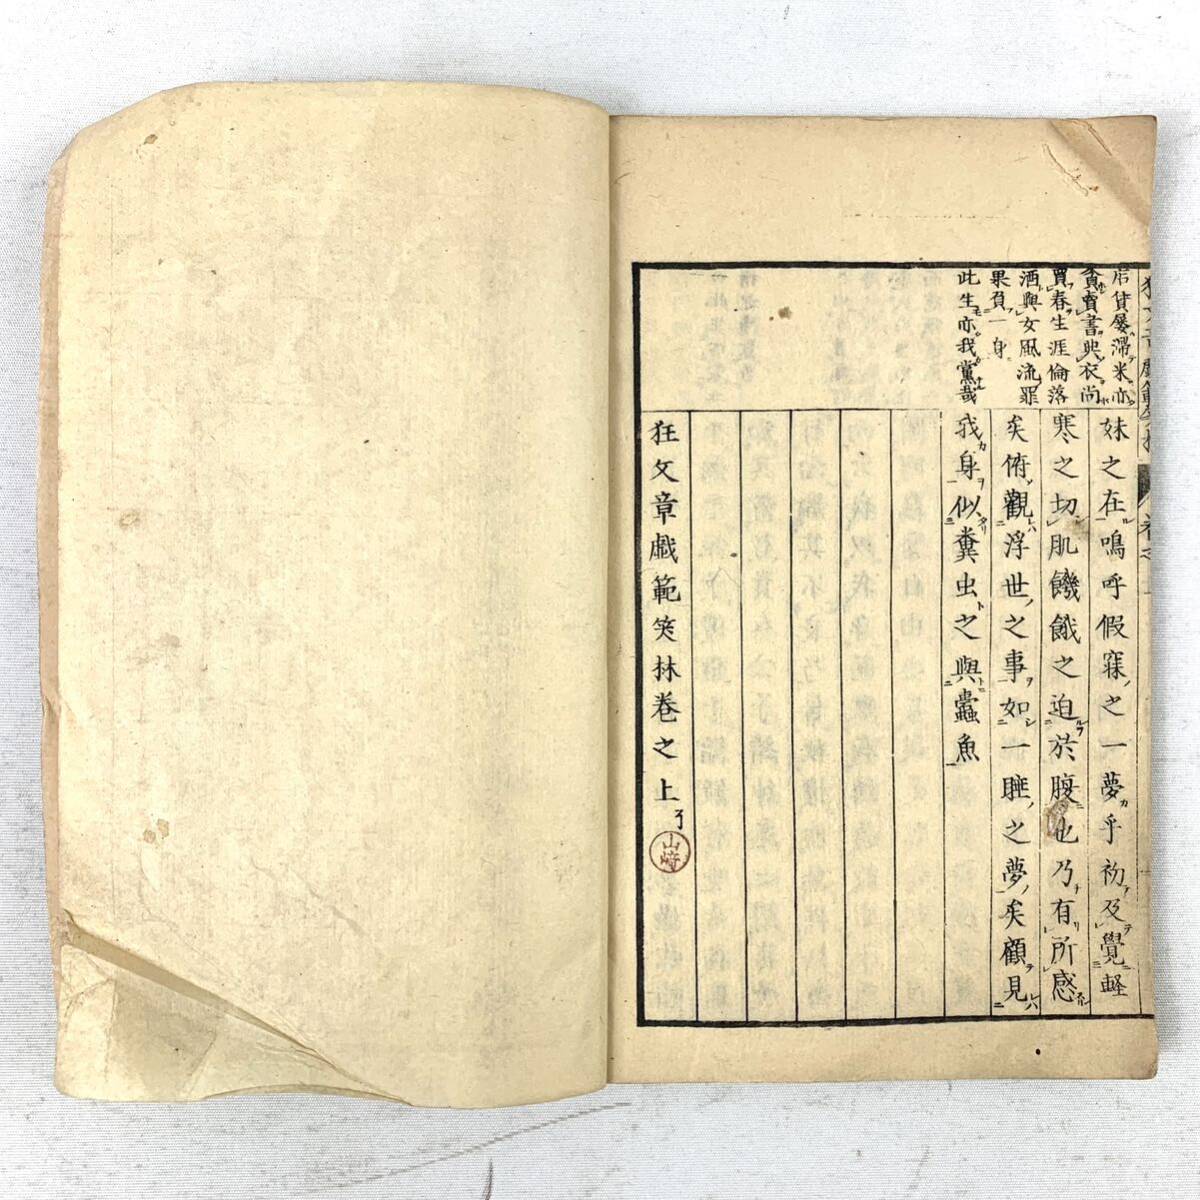 店貨屡滞米亦
貪賣書典衣尚
買春生涯倫落
酒與女風流罪
果負一身
此生亦我黨哉
妹之在鳴呼假寐之一夢乎初及覺輕
寒之切肌饑餓之迫於腹也乃有所感
矣俯觀浮世之事如一睡之夢矣顧見
我身似糞虫之與蠧魚
狂文章戯範笑林巻之上
山崎